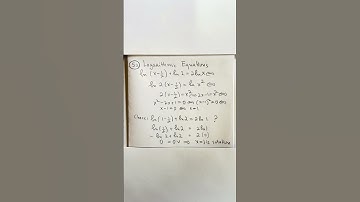 52 Logarithmic Equations
ln (x-½)+ln 2 = 2lnx ⇔
ln 2(x-½) = ln x² ⇔
2(x-½)=x² ⇔ 2x-1=x² ⇔
x²-2x+1=0 ⇔ (x-1)²=0 ⇔
⇔ x-1=0 ⇔ x=1
Check: ln(1-½)+ln2 = 2ln1 ?
ln(½)+ln2 = 2ln1
-ln2+ln2 = 2(0)
0 = 0 ✓ ⇒ x=1 is solution